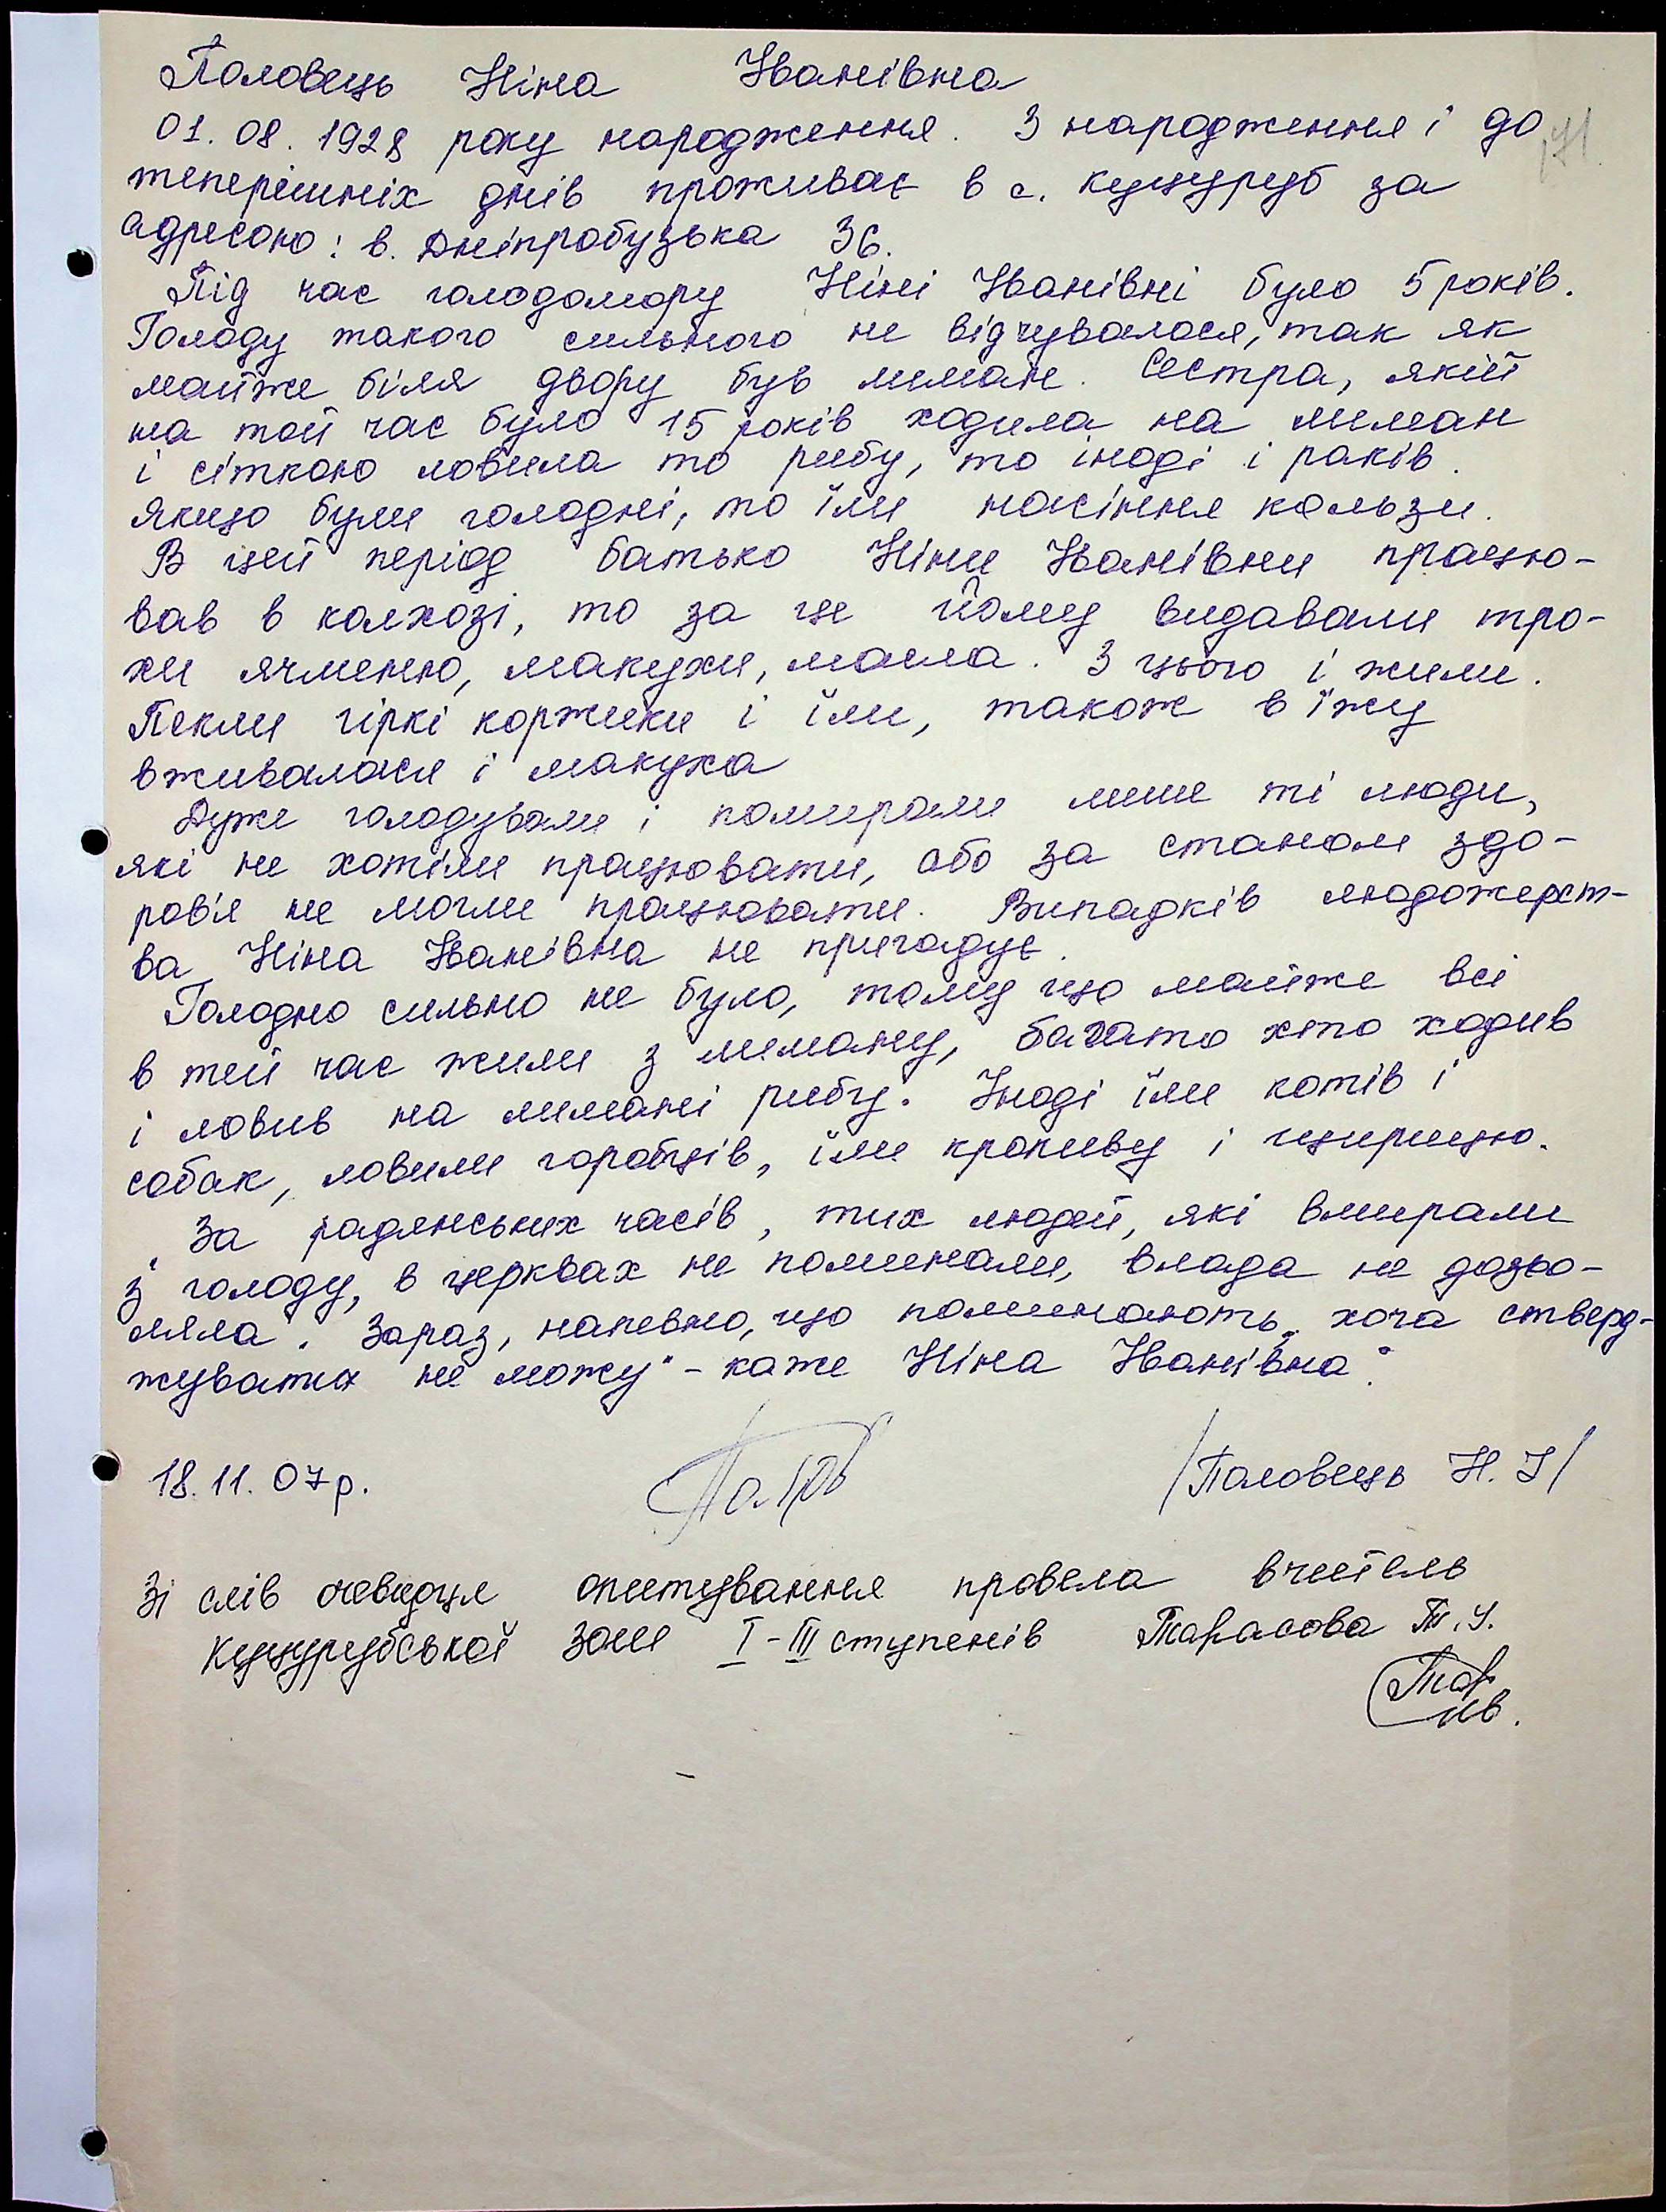 Половець Ніна Іванівна
01.08.1928 року народження. З народження і до
теперішніх днів проживає в с. Куцуруб за
адресою: в. Дніпробузька 36.
Під час голодомору Ніні Іванівні було 5 років.
Голоду такого сильного не відчувалося, так як
майже біля двору був лиман. Сестра, якій
на той час було 15 років ходила на лиман
і сіткою ловила то рибу, то іноді і раків.
Якщо були голодні, то їли насіння кользи.
В цей період батько Ніни Іванівни працю-
вав в колхозі, то за це йому видавали тро-
хи ячменю, макухи, масла. З цього і жили.
Пекли гіркі коржики і їли, також в їжу
вживалася і макуха
Дуже голодували і помирали лише ті люди,
які не хотіли працювати, або за станом здо-
ров'я не могли працювати. Випадків людожерст-
ва Ніна Іванівна не пригадує.
Голодно сильно не було, тому що майже всі
в тей час жили з лиману, багато хто ходив
і ловив на лимані рибу. Іноді їли котів і
собак, ловили горобців, їли кропиву і щирицю.
За радянських часів, тих людей, які вмирали
з голоду, в церквах не поминали, влада не дозво-
ляла. Зараз, напевно, що поминають, хоча стверд-
жувати не можу" - каже Ніна Іванівна.
18.11.07р. /Половець Н. І/
Зі слів очевидця опитування провела вчитель
Куцурубської ЗОШ І-ІІІ ступенів Тарасова Т.І.